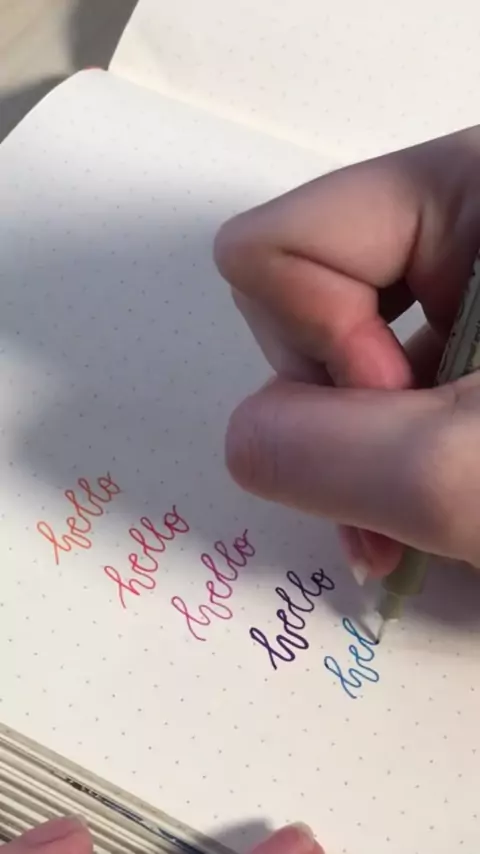 hello
hello
hello
hello
hel